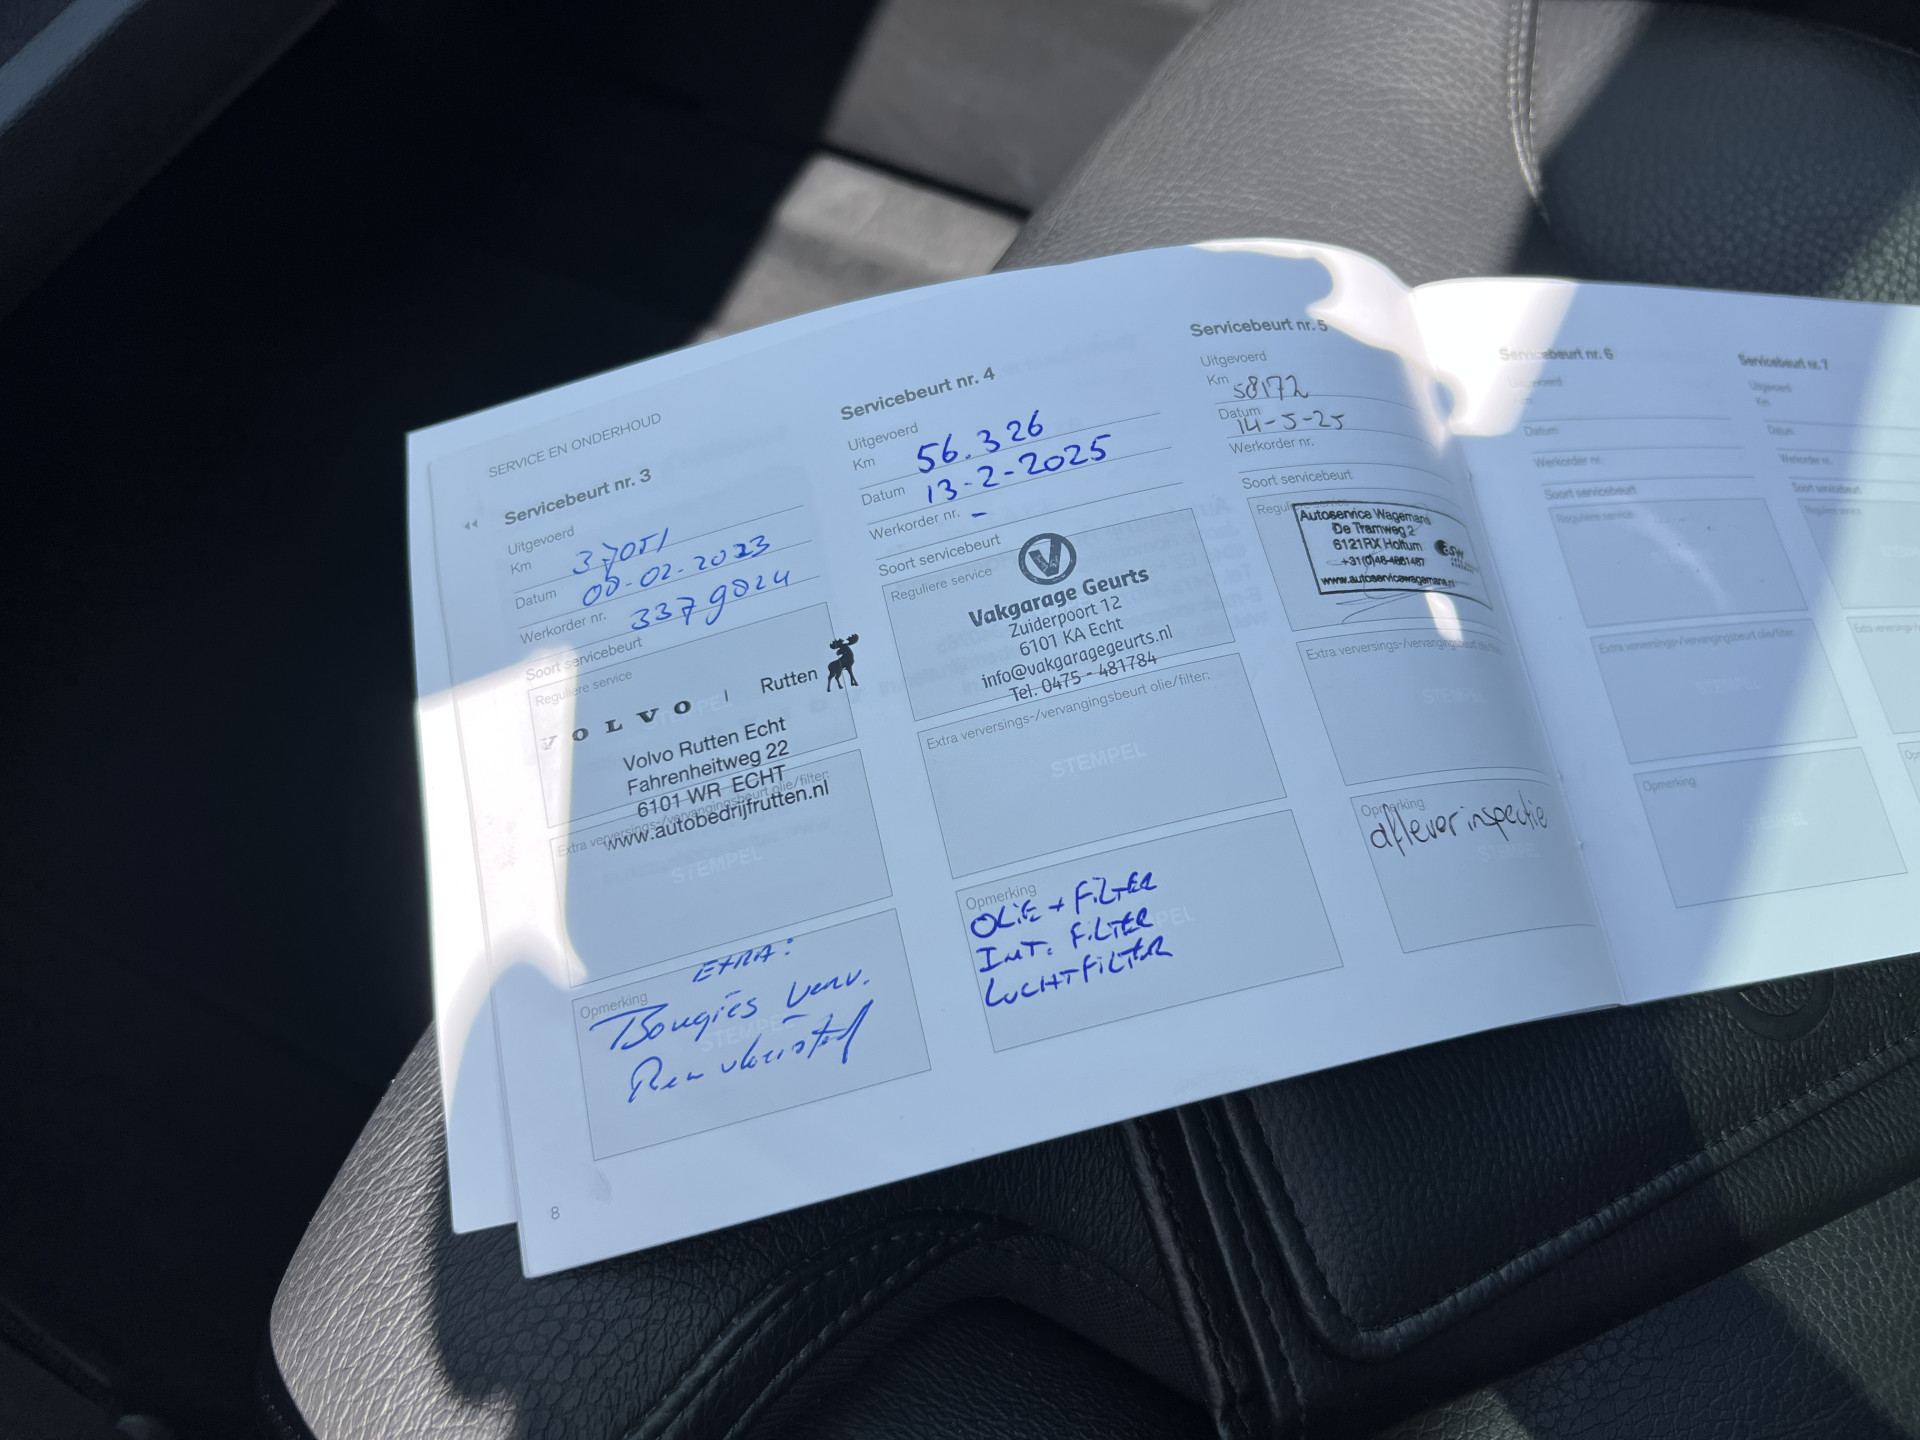 SERVICE EN ONDERHOUD
Servicebeurt nr. 3
Uitgevoerd
Km 37051
Datum 08-02-2023
Werkorder nr. 3379024
Soort servicebeurt
Reguliere service
VOLVO | Rutten
Volvo Rutten Echt
Fahrenheitweg 22
6101 WR ECHT
www.autobedrijfrutten.nl
Extra verversings-/vervangingsbeurt olie/filter:
STEMPEL
EXTRA:
Opmerking
Bougies verv.
Rem vloeistof
8
Servicebeurt nr. 4
Uitgevoerd
Km 56.326
Datum 13-2-2025
Werkorder nr. -
Soort servicebeurt
Reguliere service
Vakgarage Geurts
Zuiderpoort 12
6101 KA Echt
info@vakgaragegeurts.nl
Tel. 0475 - 481784
Extra verversings-/vervangingsbeurt olie/filter:
STEMPEL
Opmerking
OLIE + FILTER
INT. FILTER
LUCHTFILTER
Servicebeurt nr. 5
Uitgevoerd
Km 58172
Datum 14-5-25
Werkorder nr.
Soort servicebeurt
Autoservice Wagemans
De Tramweg 2
6121RX Holtum
+31(0)46-4861467
www.autoservicewagemans.nl
Extra verversings-/vervangingsbeurt olie/filter:
STEMPEL
Opmerking
aflever inspectie
Servicebeurt nr. 6
Uitgevoerd
Km
Datum
Werkorder nr.
Soort servicebeurt
Reguliere service
Extra verversings-/vervangingsbeurt olie/filter:
Opmerking
Servicebeurt nr. 7
Uitgevoerd
Km
Datum
Werkorder nr.
Soort servicebeurt
Reguliere service